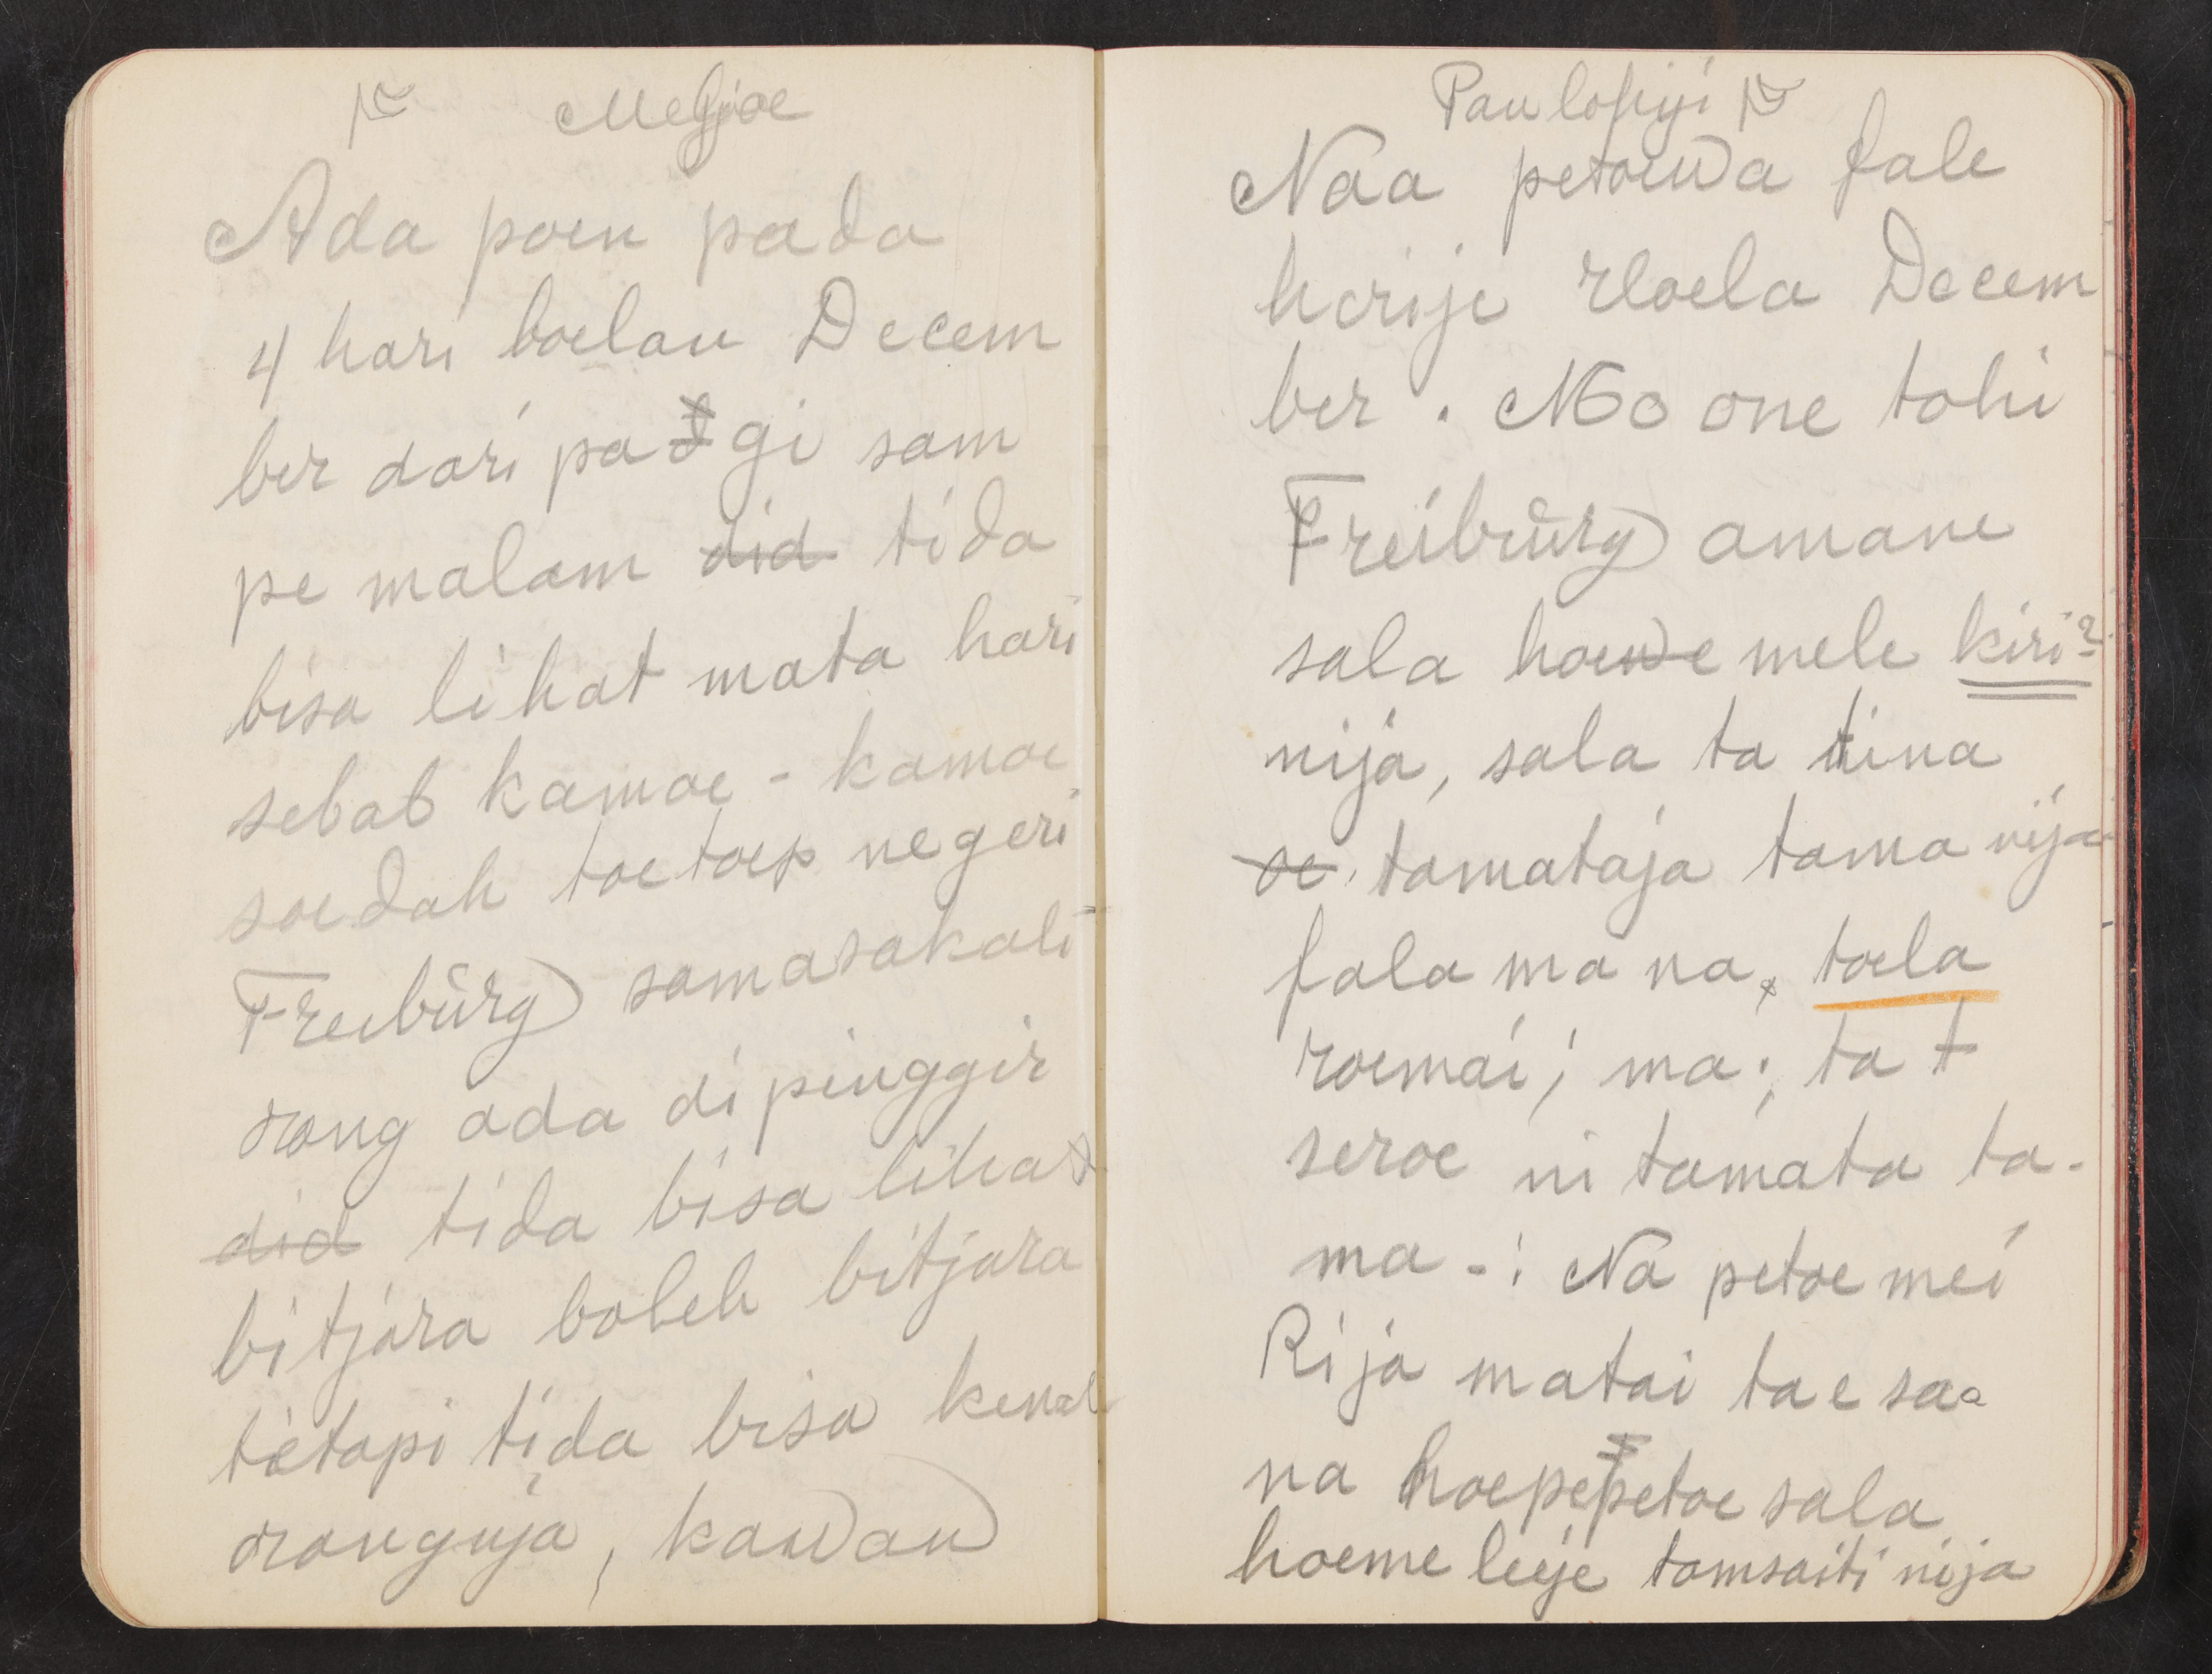 Ada poen pada
4 hari boelan Decem
ber dari pagi sam
pe malam did tida
bisa lihat mata hari
sebab kamoe - kamoe
soedah toetoep negeri
Freibŭrg samasakali
orong ada di pinggir
did tida bisa lihat
bitjara boleh bitjara
tètapi tida bisa kenal
orangnja, kawan
Paulohiji
Naa petoewa fale
herije rloela Decem
ber. Mo one tohi
Freibŭrg amane
sala hoewe mele kiri?
nija, sala ta tina
se, tamataja tama nija
fala ma na, toela
roemai; ma; ta t
seroe ni tamata ta-
ma -! Na petoe mei
Rija matai ta e saa
na hoepepetoe sala
hoeme leije tamsaiti nija